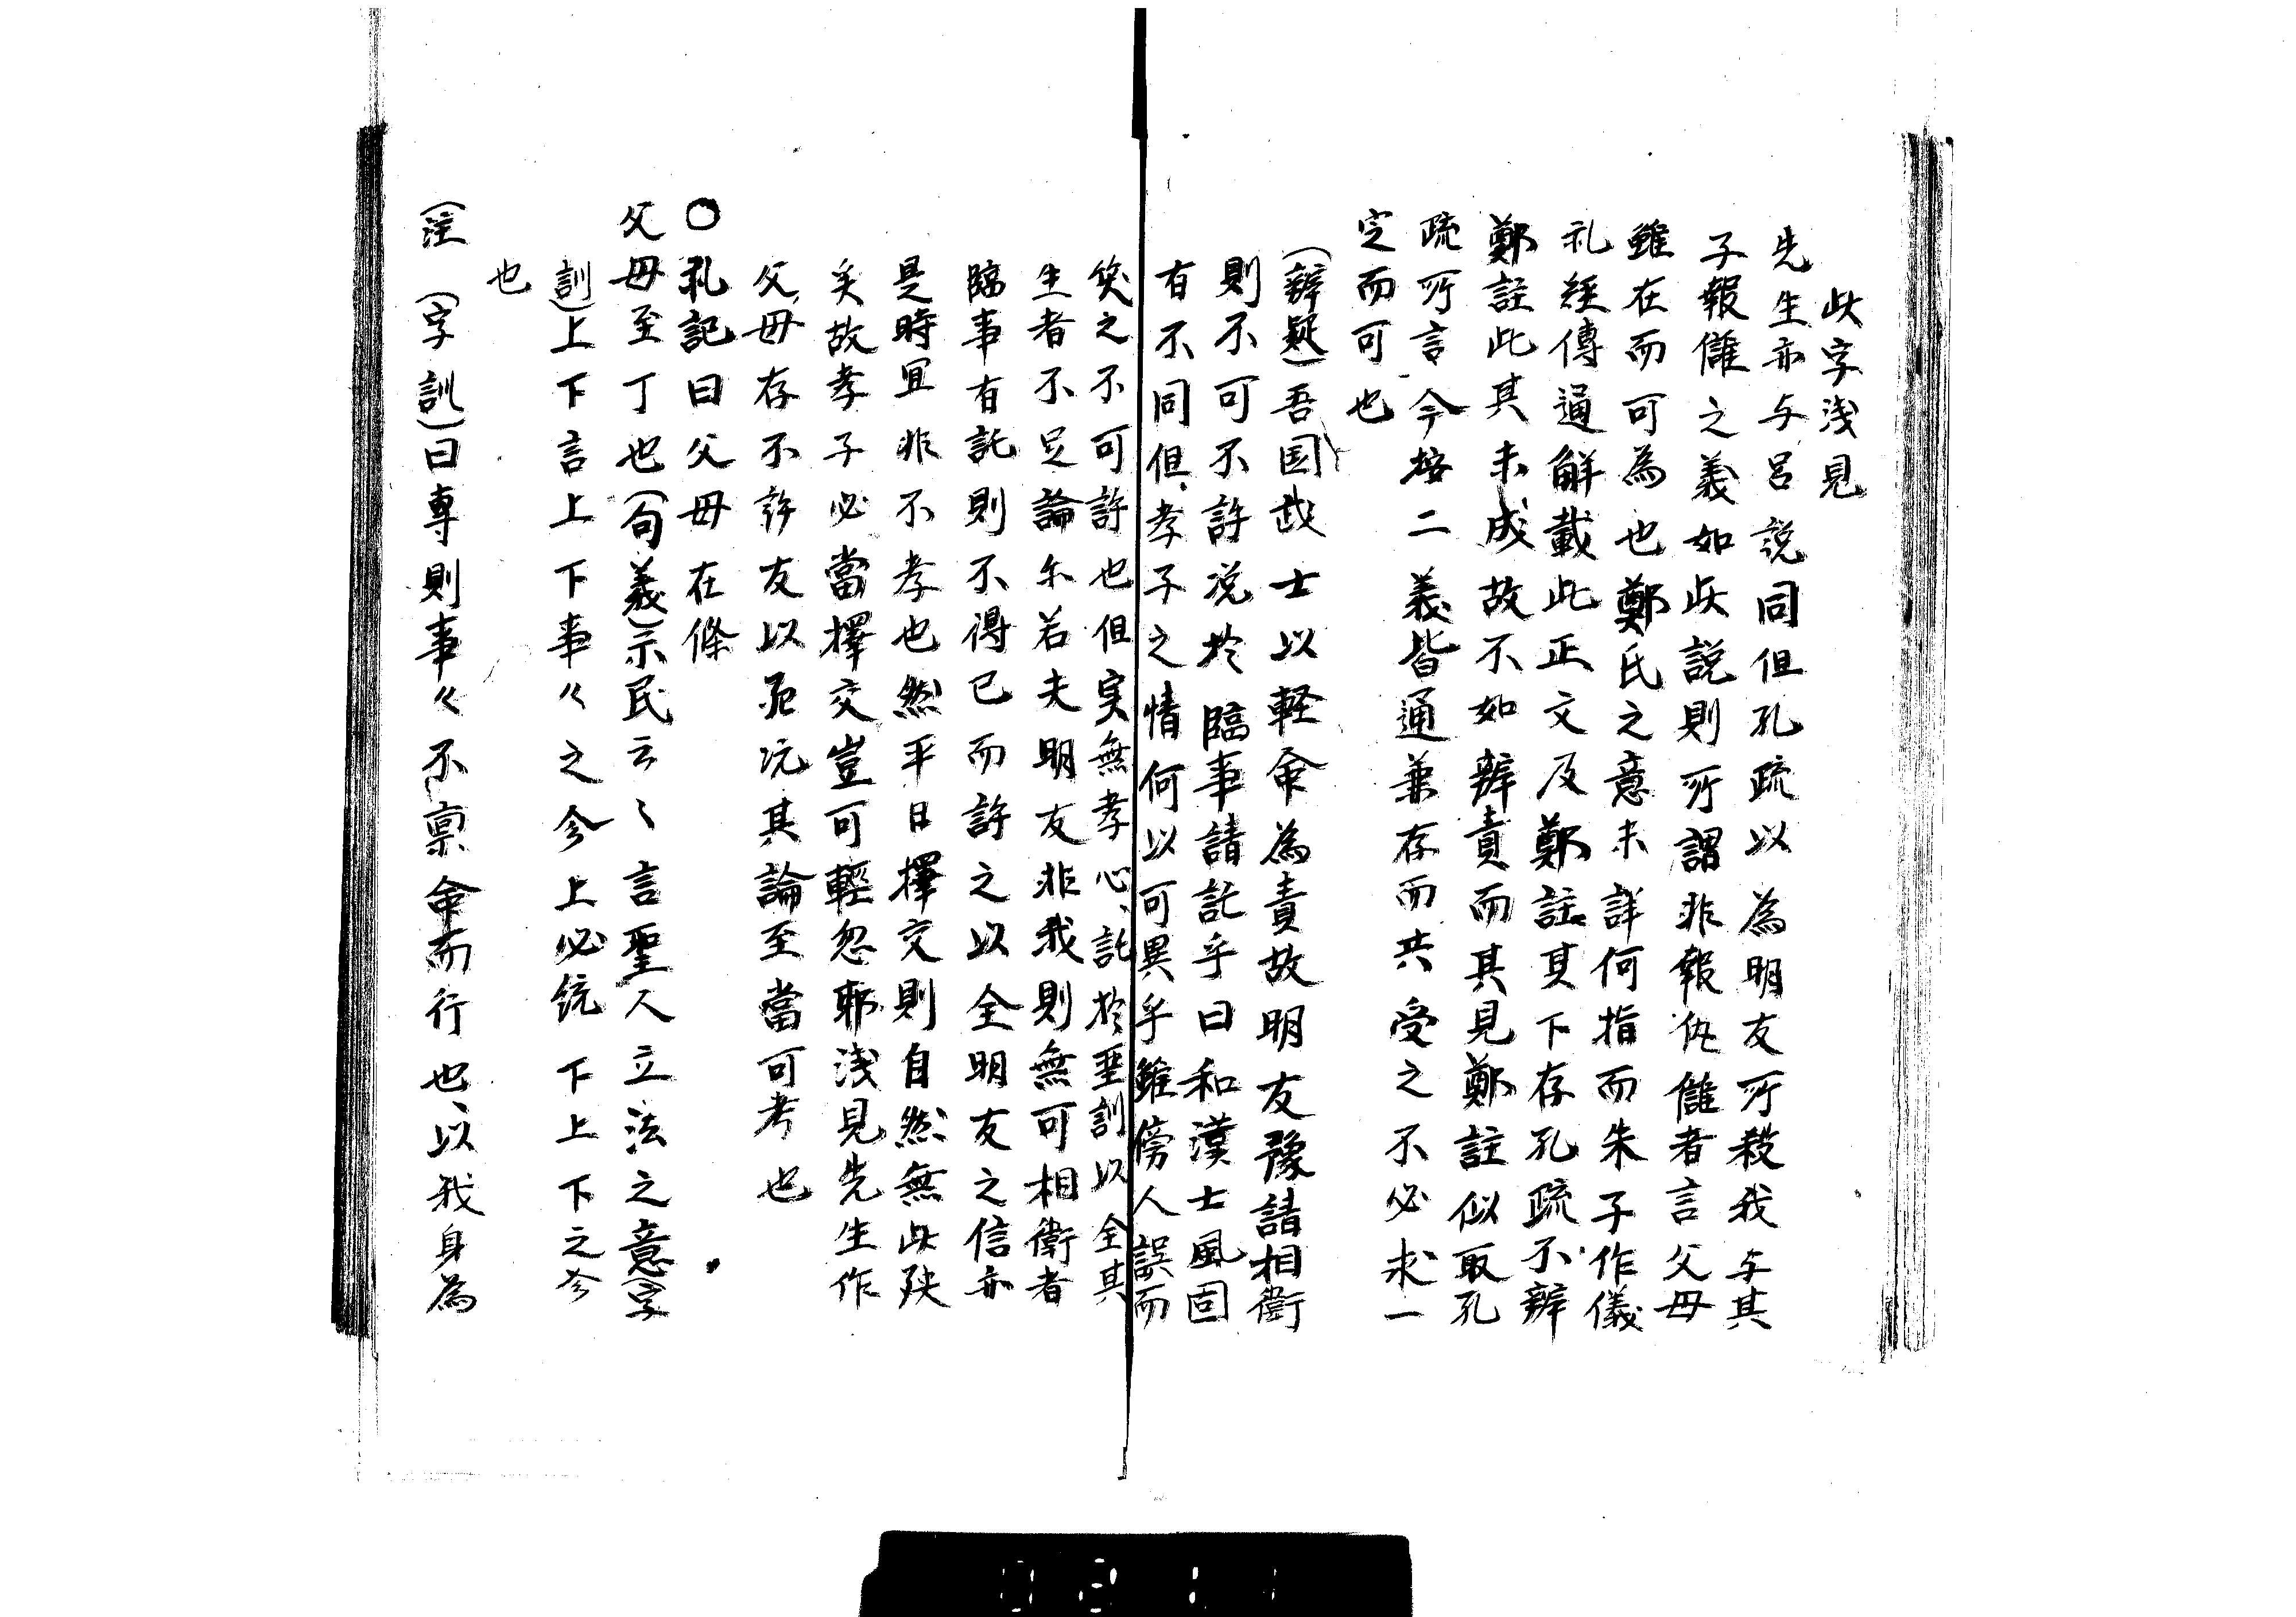 此字浅見
先生亦与呂説同但孔疏以為明友所殺我与其
子報讎之義如此説則所謂非報仇讎者言父母
雖在而可為也鄭氏之意未詳何指而朱子作儀
礼経傳通解載此正文及鄭註其下存孔疏不辨
鄭註此其未成故不如辨責而其見鄭註似取孔
疏所言今按二義皆通兼存而共受之不必求一
定而可也
(辨疑)吾国武士以軽命為責故明友豫請相衛
則不可不許況於臨事請託乎曰和漢士風固
有不同但孝子之情何以可異乎雖傍人誤而
笑之不可許也但実無孝心託於垂訓以全其
生者不足論尓若夫明友非我則無可相衛者
臨事有託則不得已而許之以全明友之信亦
是時宜非不孝也然平日擇交則自然無此殃
矣故孝子必當擇交豈可輕忽耶浅見先生作
父母存不許友以死況其論至當可考也
○礼記曰父母在條
父母至丁也(句義)示民云〻言聖人立法之意(字
訓)上下言上下事〻之分上必統下上下之分
也
(注(字訓)曰専則事〻不稟命而行也以我身為